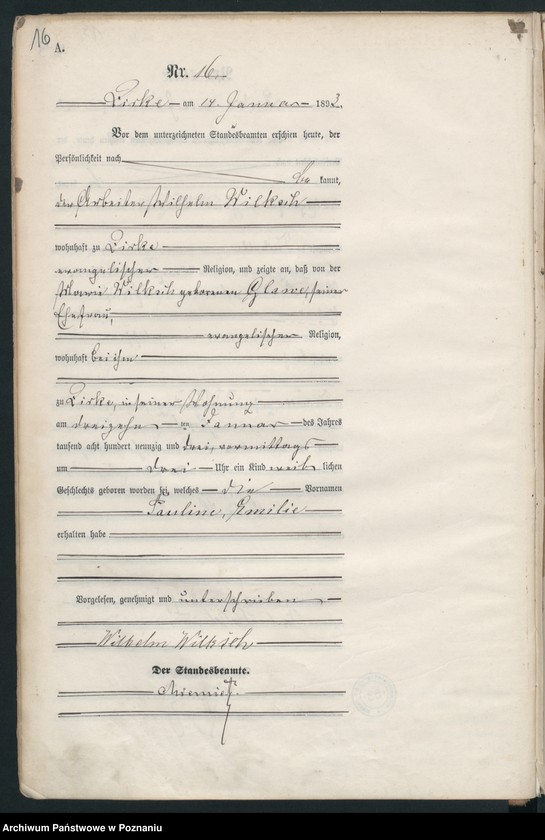 16
A.
Nr. 16.
Zirke am 14. Januar 1893.
Vor dem unterzeichneten Standesbeamten erschien heute, der
Persönlichkeit nach
be kannt,
der Arbeiter Wilhelm Wilksch
wohnhaft zu Zirke
evangelischer Religion, und zeigte an, daß von der
Marie Wilksch geborenen Glawe, seiner
Ehefrau,
evangelischer Religion,
wohnhaft bei ihm
zu Zirke, in seiner Wohnung
am dreizehn ten Januar des Jahres
tausend acht hundert neunzig und drei, vormittags
um drei Uhr ein Kind weib lichen
Geschlechts geboren worden sei, welches die Vornamen
Pauline, Emilie
erhalten habe
Vorgelesen, genehmigt und unterschrieben
Wilhelm Wilksch
Der Standesbeamte.
Archiwum Państwowe w Poznaniu